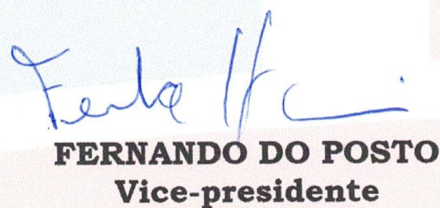 FERNANDO DO POSTO
Vice-presidente